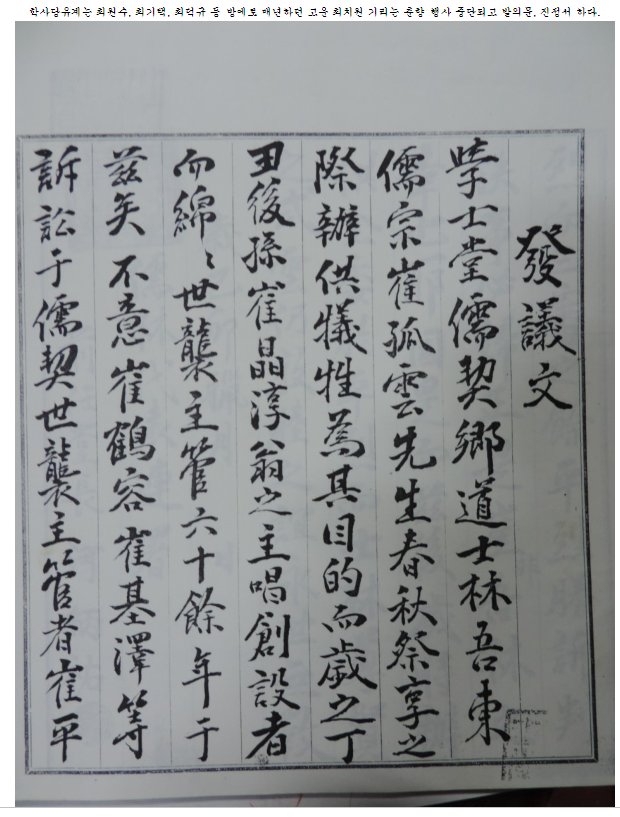 학사당유계는 최원수, 최기택, 최덕규 등 방해로 매년하던 고운 최치원 기리는 춘향 행사 중단되고 발의문, 진정서 하다.
發議文
學士堂儒契鄕道士林吾東
儒宗崔孤雲先生春秋祭享之
際辦供犧牲爲其目的而歲之丁
丑後孫崔晶淳翁之主唱創設者
而綿〻世襲主管六十餘年于
玆矣不意崔鶴容崔基澤等
訴訟于儒契世襲主管者崔平